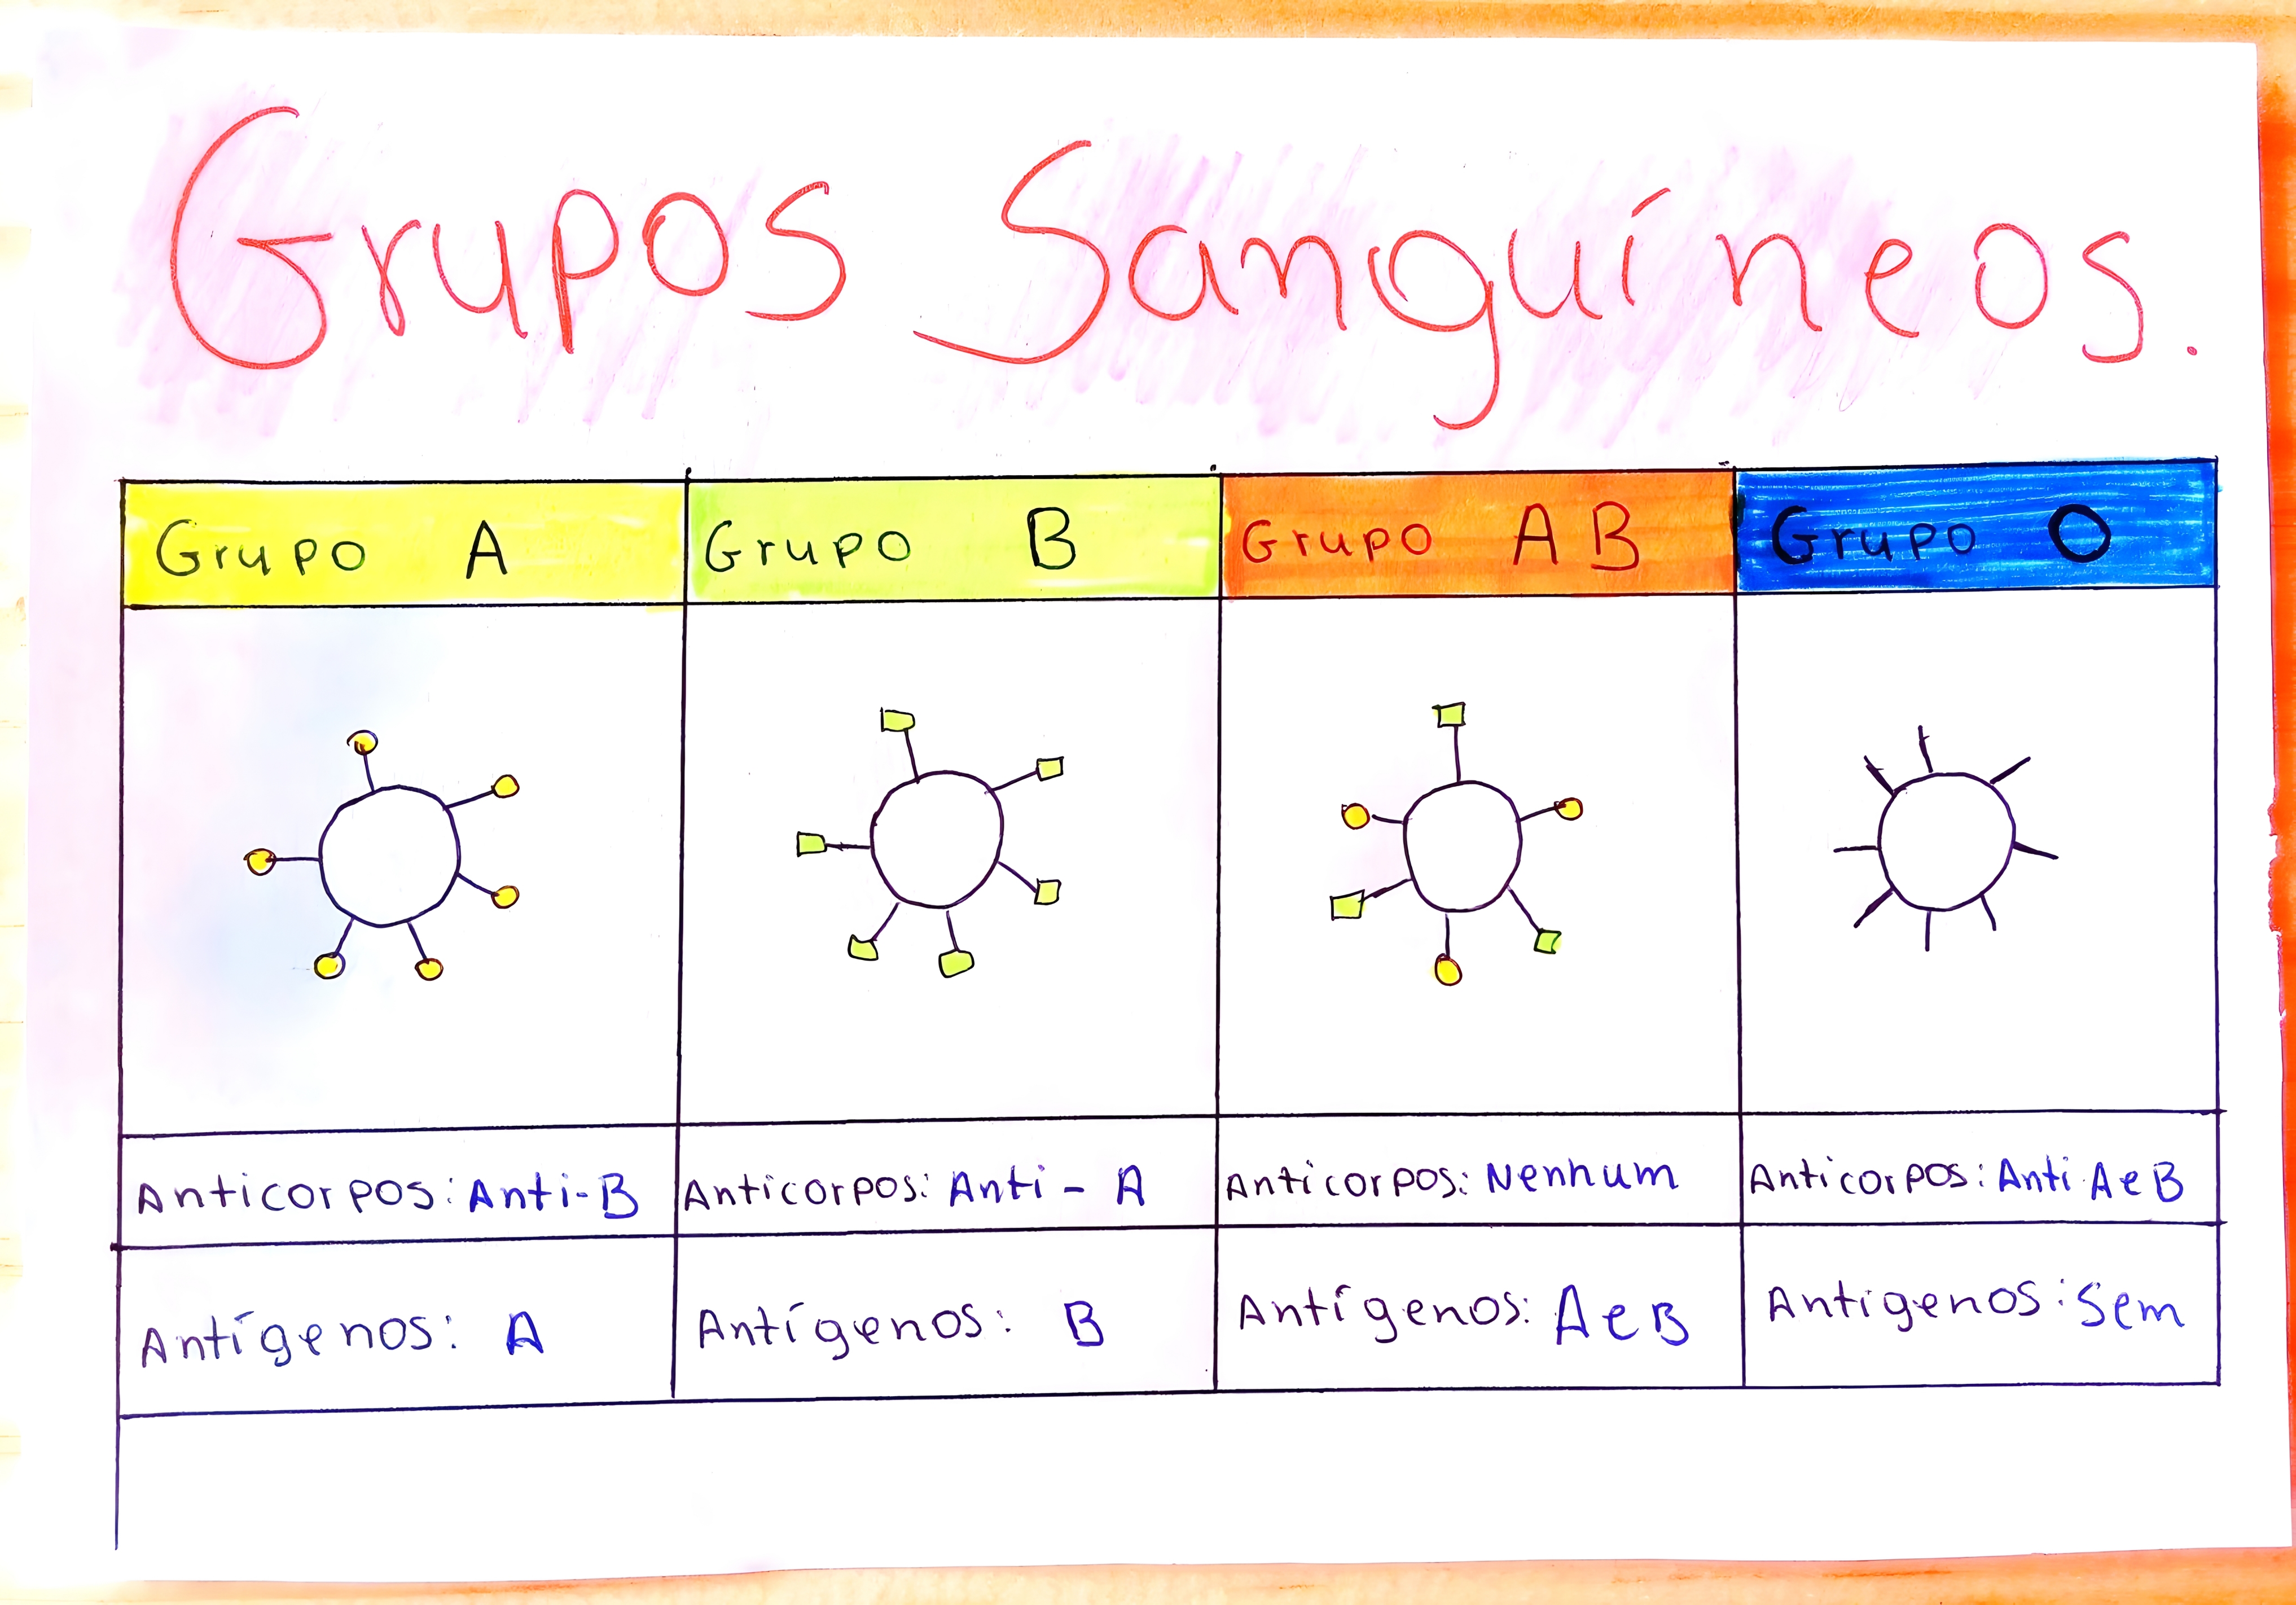 Grupos Sanguíneos.
Grupo A
Grupo B
Grupo AB
Grupo O
Anticorpos: Anti-B
Anticorpos: Anti - A
Anticorpos: Nenhum
Anticorpos: Anti A e B
Antígenos: A
Antígenos: B
Antígenos: A e B
Antigenos: Sem